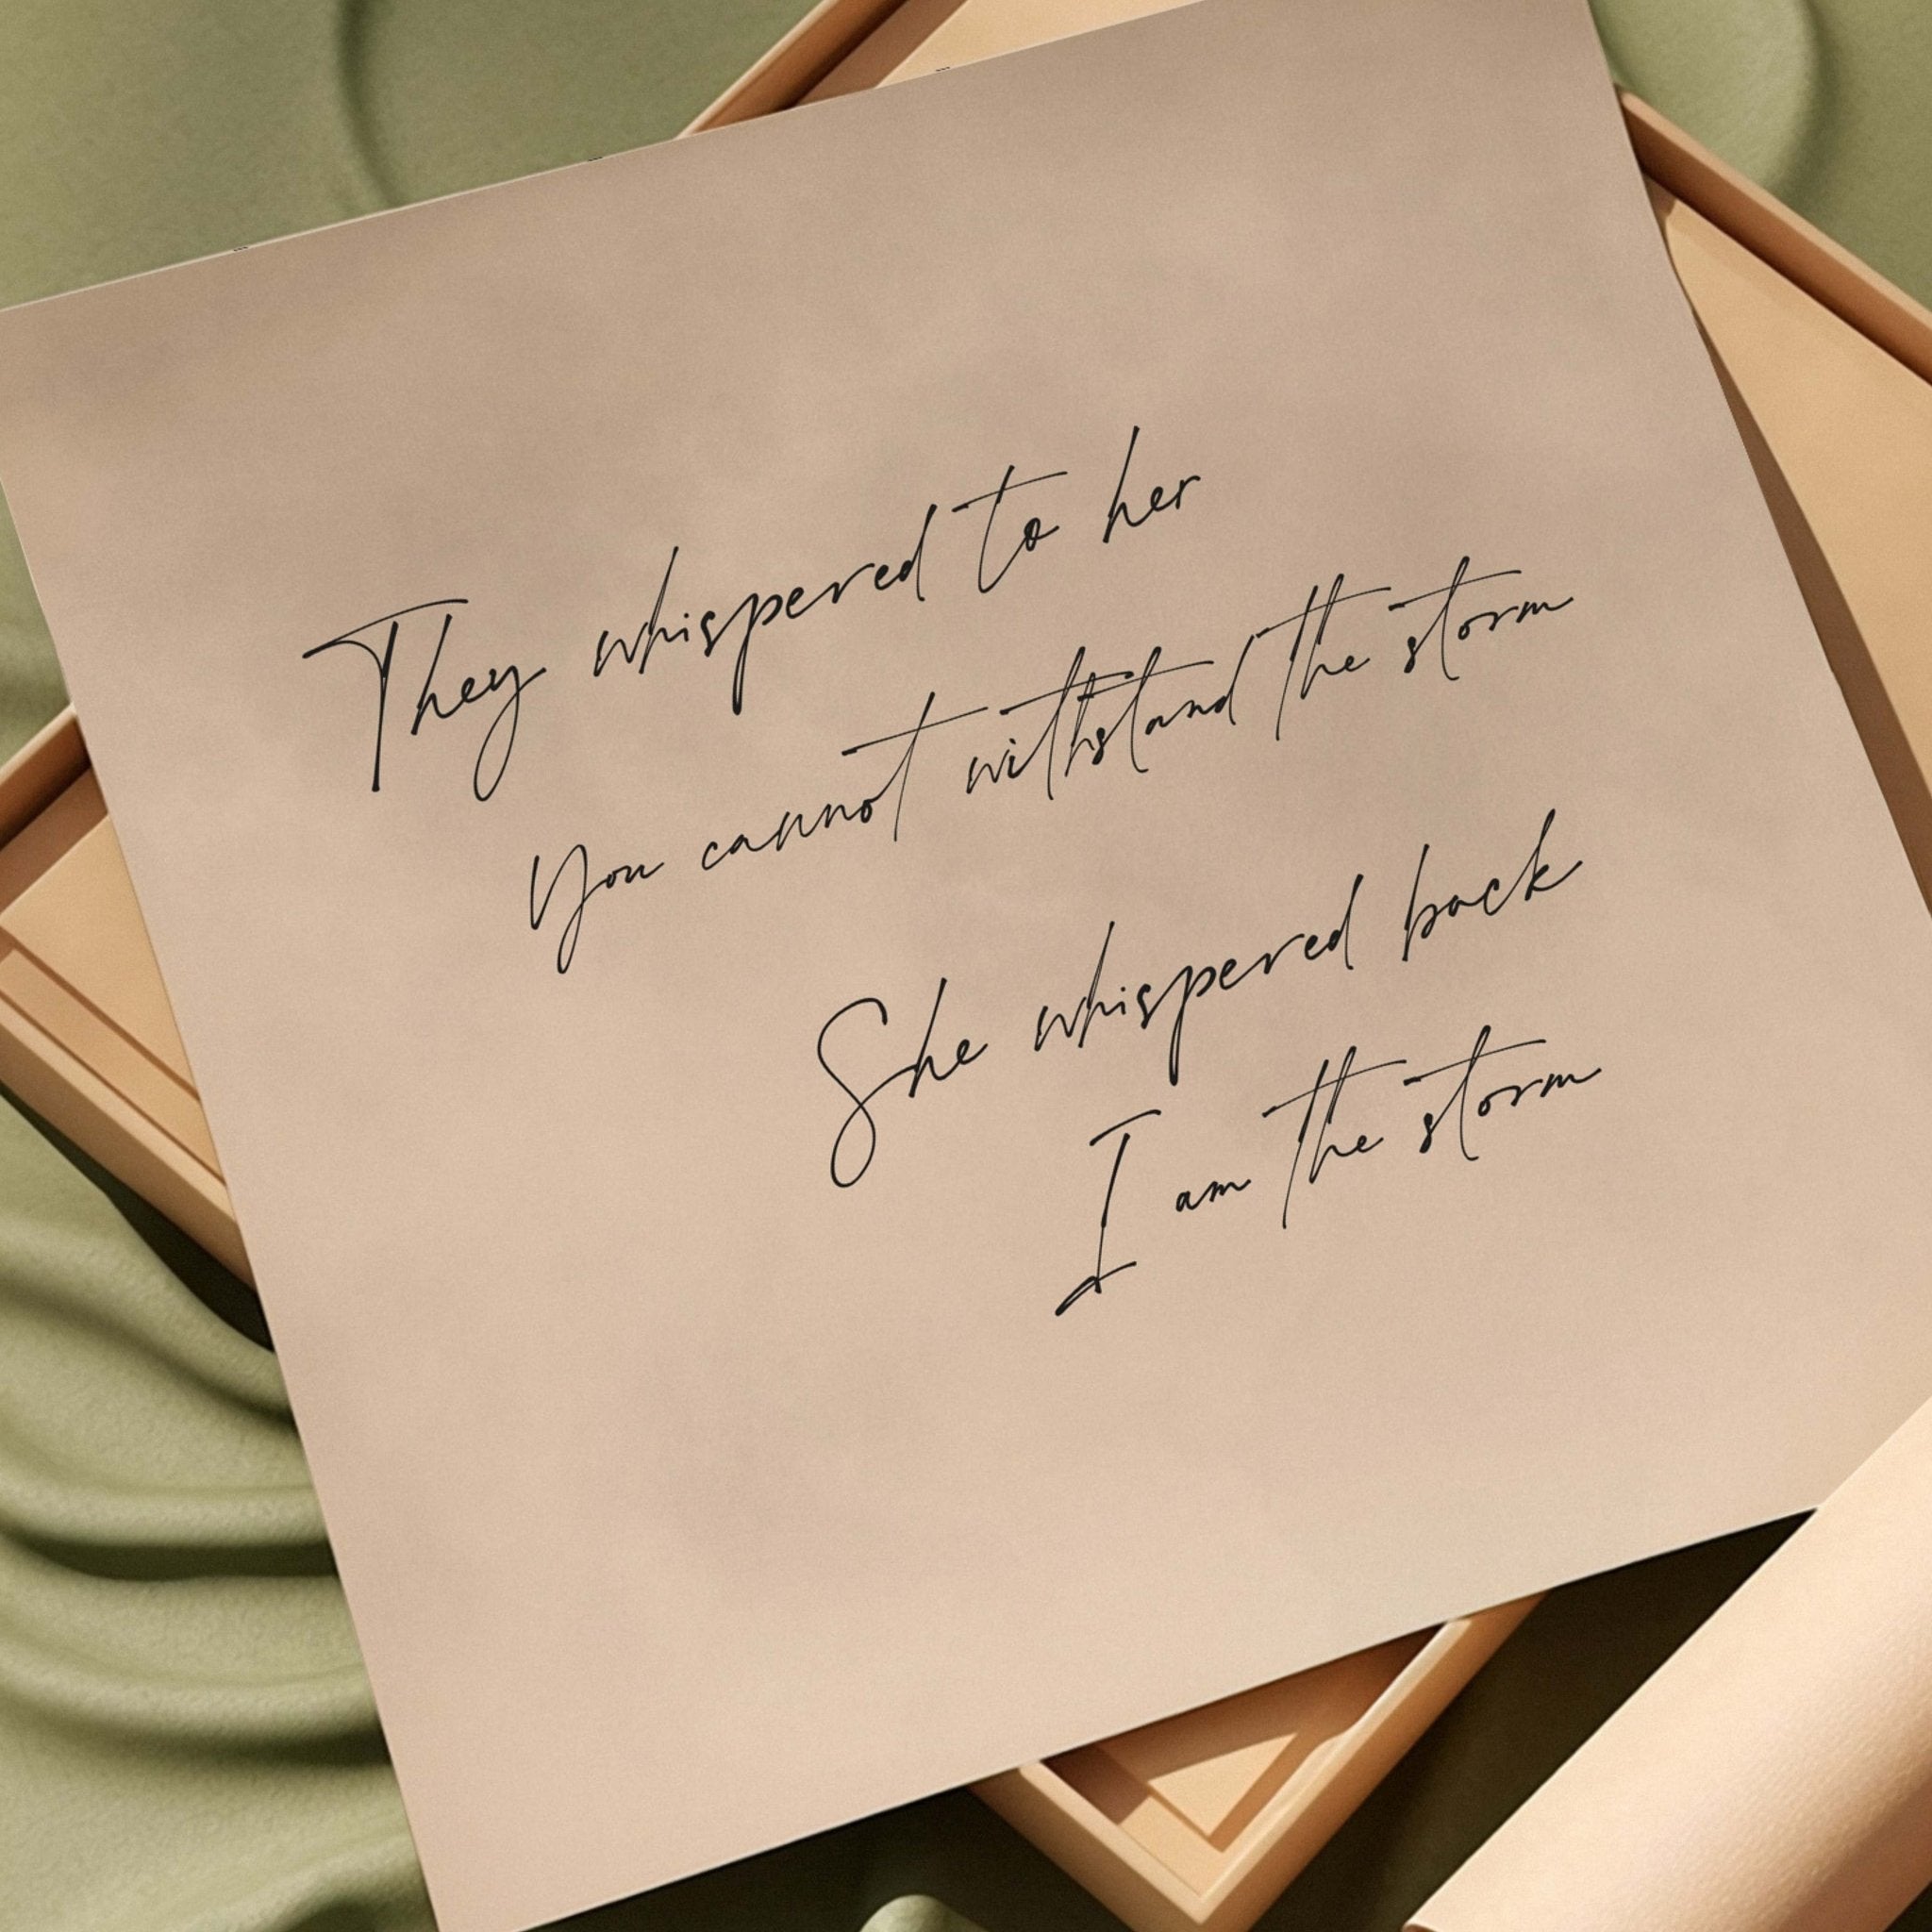 They whispered to her
You cannot withstand the storm
She whispered back
I am the storm